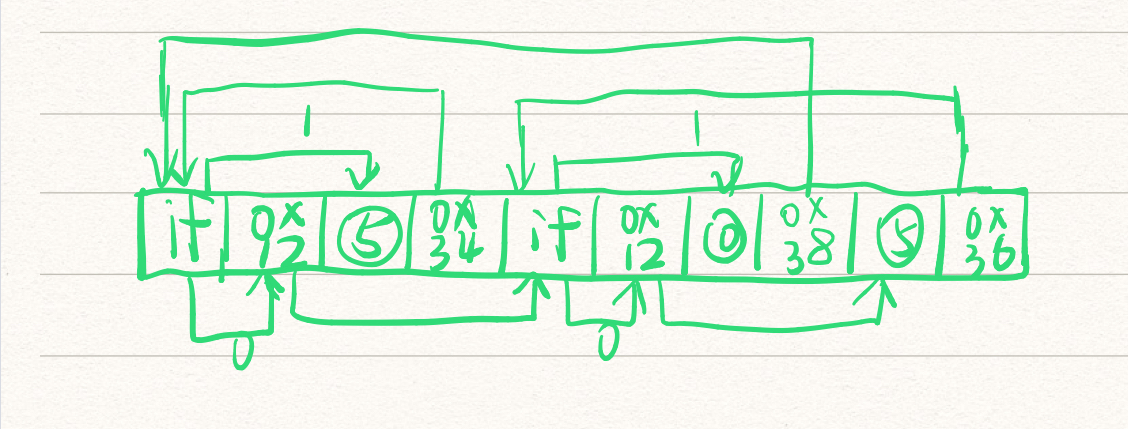 1 1
if 0x12 ⑤ 0x34 if 0x12 ⓪ 0x38 ⑤ 0x36
0 0